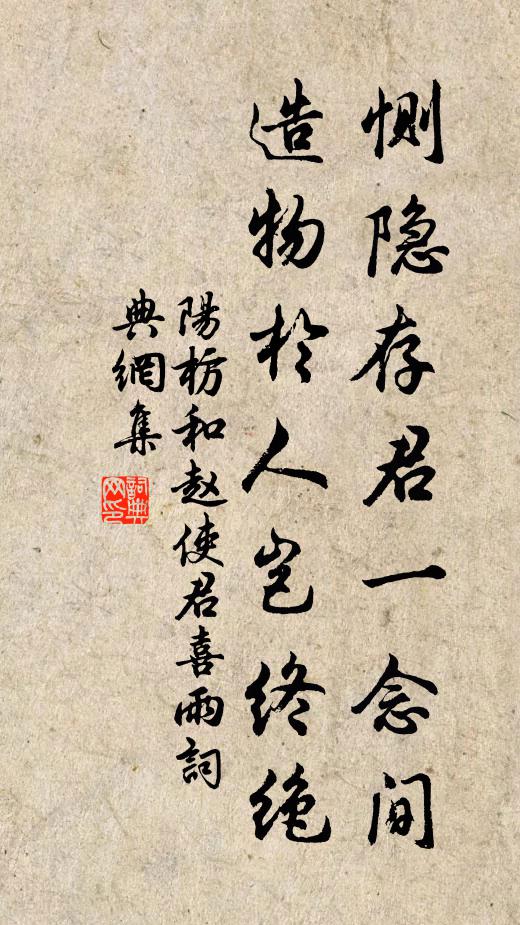 恻隐存君一念间
造物於人岂终绝
陽枋和赵使君喜雨詞
典網集
詞典网印